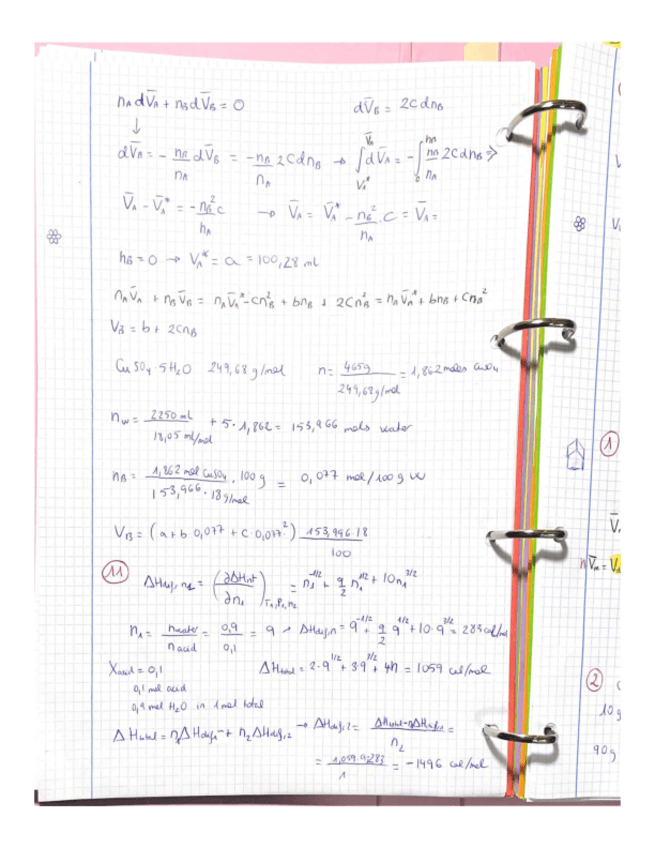 n_A dV̄_A + n_B dV̄_B = 0    dV̄_B = 2C dn_B
↓
dV̄_A = - n_B/n_A dV̄_B = -n_B/n_A 2C dn_B → ∫_{V_A*}^{V̄_A} dV̄_A = -∫_0^{n_B} n_B/n_A 2C dn_B ⇒
V̄_A - V̄_A* = -n_B²/n_A c → V̄_A = V̄_A* - n_B²/n_A · C = V̄_A =
n_B = 0 → V_A* = a = 100,28 ml
n_A V̄_A + n_B V̄_B = n_A V̄_A* - Cn_B² + bn_B + 2Cn_B² = n_A V̄_A* + bn_B + Cn_B²
V_B = b + 2Cn_B
CuSO₄ · 5H₂O 249,68 g/mol    n = 465g / 249,68 g/mol = 1,862 moles CuSO₄
n_w = 2250 ml / 18,05 ml/mol + 5 · 1,862 = 153,966 mols water
n_B = 1,862 mol CuSO₄ / 153,966 · 18 g/mol · 100 g = 0,077 mol/100 g W
V_B = (a + b 0,077 + c · 0,077²) 153,996 · 18 / 100
11 ΔHdif, n₁ = (∂ΔHint / ∂n₁)_{T₁,P₁,n₂} = n₁^{-1/2} + 9/2 n₁^{1/2} + 10n₁^{3/2}
n₁ = nwater / nacid = 0,9 / 0,1 = 9 → ΔHdif,n = 9^{-1/2} + 9/2 9^{1/2} + 10 · 9^{3/2} = 283 cal/mol
Xacid = 0,1    ΔHtotal = 2 · 9^{1/2} + 3 · 9^{3/2} + 4n = 1059 cal/mol
0,1 mol acid
0,9 mol H₂O in 1 mol total
ΔHtotal = n₁ΔHdif,1 + n₂ΔHdif,2 → ΔHdif,2 = ΔHtotal - n₁ΔHdif,1 / n₂ =
= 1,059 - 9 · 283 / 1 = -1496 cal/mol
1
2
10 g
90 g